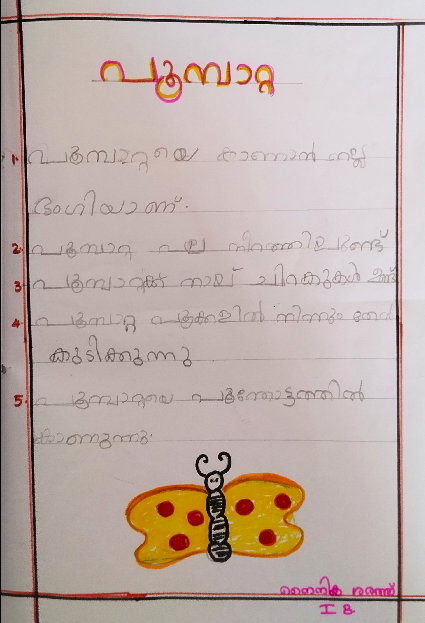 പൂമ്പാറ്റ
1. പൂമ്പാറ്റയെ കാണാൻ നല്ല
ഭംഗിയാണ്.
2. പൂമ്പാറ്റ പല നിറത്തിലുണ്ട്
3. പൂമ്പാറ്റക്ക് നാല് ചിറകുകൾ ഉണ്ട്
4. പൂമ്പാറ്റ പൂക്കളിൽ നിന്നും തേൻ
കുടിക്കുന്നു
5. പൂമ്പാറ്റയെ പൂന്തോട്ടത്തിൽ
കാണുന്നു.
I B